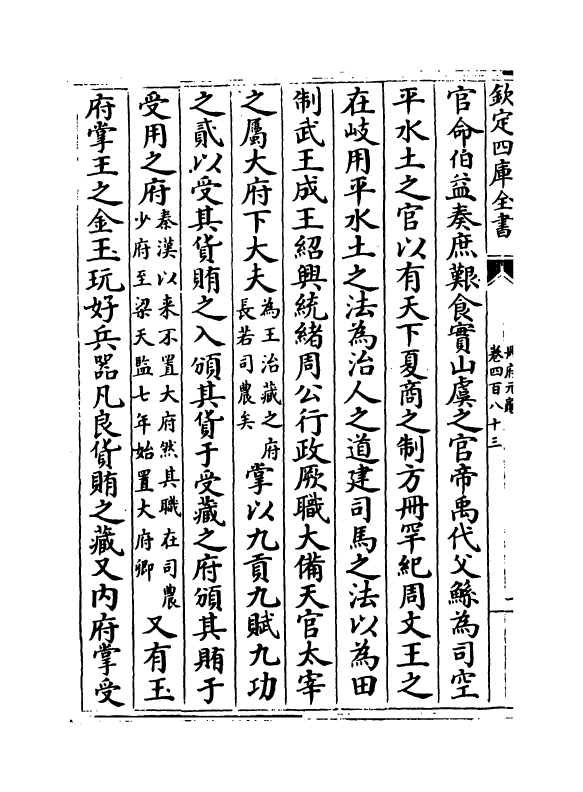 欽定四庫全書
冊府元龜
卷四百八十三
官命伯益奏庶艱食實山虞之官帝禹代父鯀為司空
平水土之官以有天下夏商之制方冊罕紀周文王之
在岐用平水土之法為治人之道建司馬之法以為田
制武王成王紹興統緒周公行政厥職大備天官太宰
之屬大府下大夫
為王治藏之府
長若司農矣
掌以九貢九賦九功
之貳以受其貨賄之入頒其貨于受藏之府頒其賄于
受用之府
秦漢以来不置大府然其職在司農
少府至梁天監七年始置大府卿
又有玉
府掌王之金玉玩好兵器凡良貨賄之藏又内府掌受